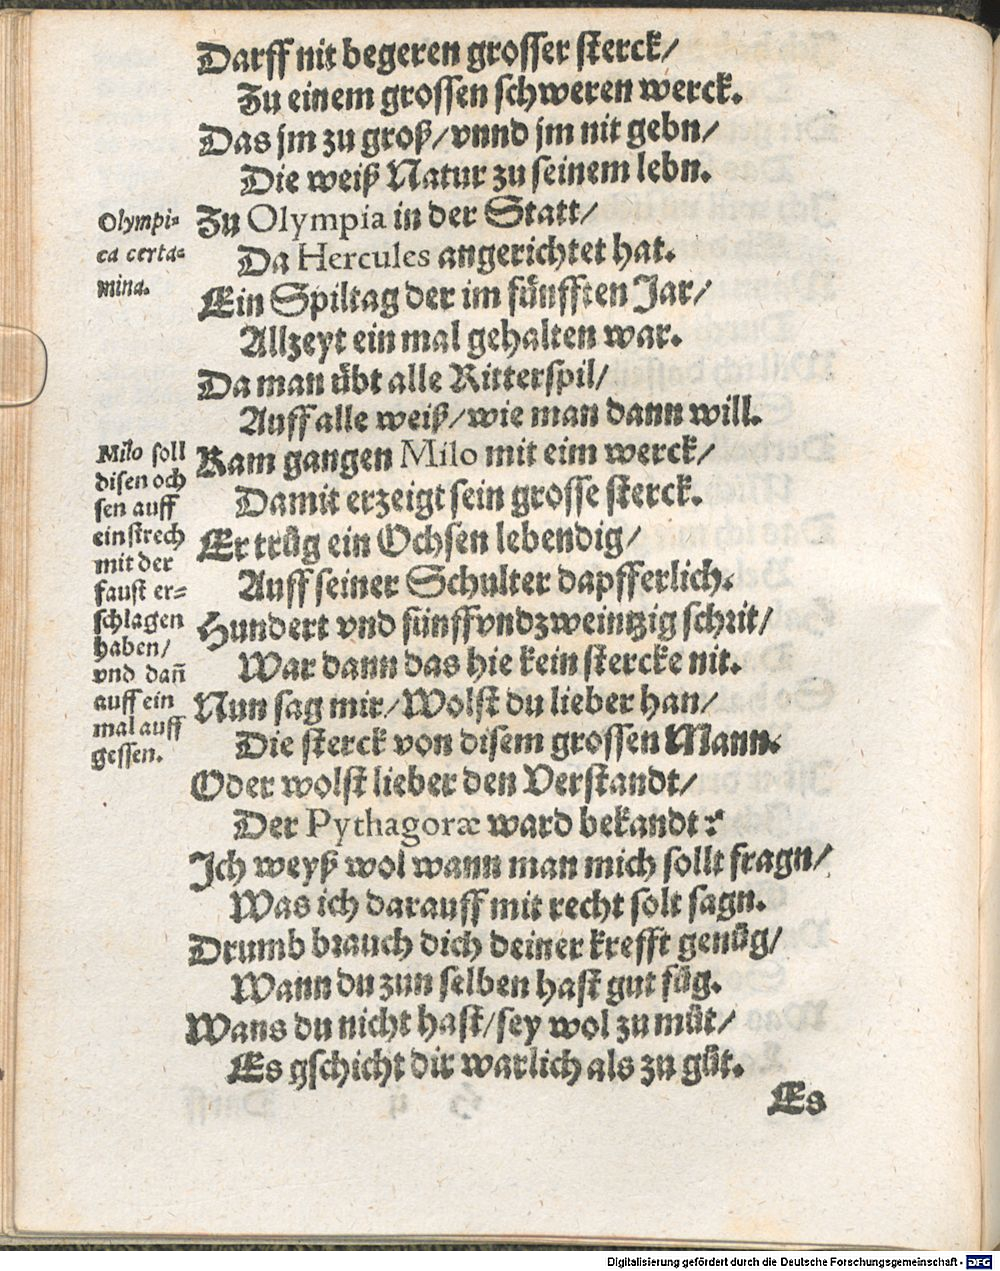 Darff nit begeren grosser sterck/
Zu einem grossen schweren werck.
Das jm zu groß/ vnnd jm nit gebn/
Die weiß Natur zu seinem lebn.
Zu Olympia in der Statt/
Da Hercules angerichtet hat.
Ein Spiltag der im fünfften Jar/
Allzeyt ein mal gehalten war.
Da man übt alle Ritterspil/
Auff alle weiß/ wie man dann will.
Kam gangen Milo mit eim werck/
Damit erzeigt sein grosse sterck.
Er trůg ein Ochsen lebendig/
Auff seiner Schulter dapfferlich.
Hundert vnd fünffvndzweintzig schrit/
War dann das hie kein stercke nit.
Nun sag mir/ Wolst du lieber han/
Die sterck von disem grossen Mann.
Oder wolst lieber den Verstandt/
Der Pythagoræ ward bekandt?
Ich weyß wol wann man mich sollt fragn/
Was ich darauff mit recht solt sagn.
Drumb brauch dich deiner krefft genůg/
Wann du zun selben hast gut fůg.
Wans du nicht hast/ sey wol zu můt/
Es gschicht dir warlich als zu gůt.
Es
Olympi-
ca certa-
mina.
Milo soll
disen och
sen auff
ein strech
mit der
faust er-
schlagen
haben/
vnd dañ
auff ein
mal auff
gessen.
Digitalisierung gefördert durch die Deutsche Forschungsgemeinschaft - DFG